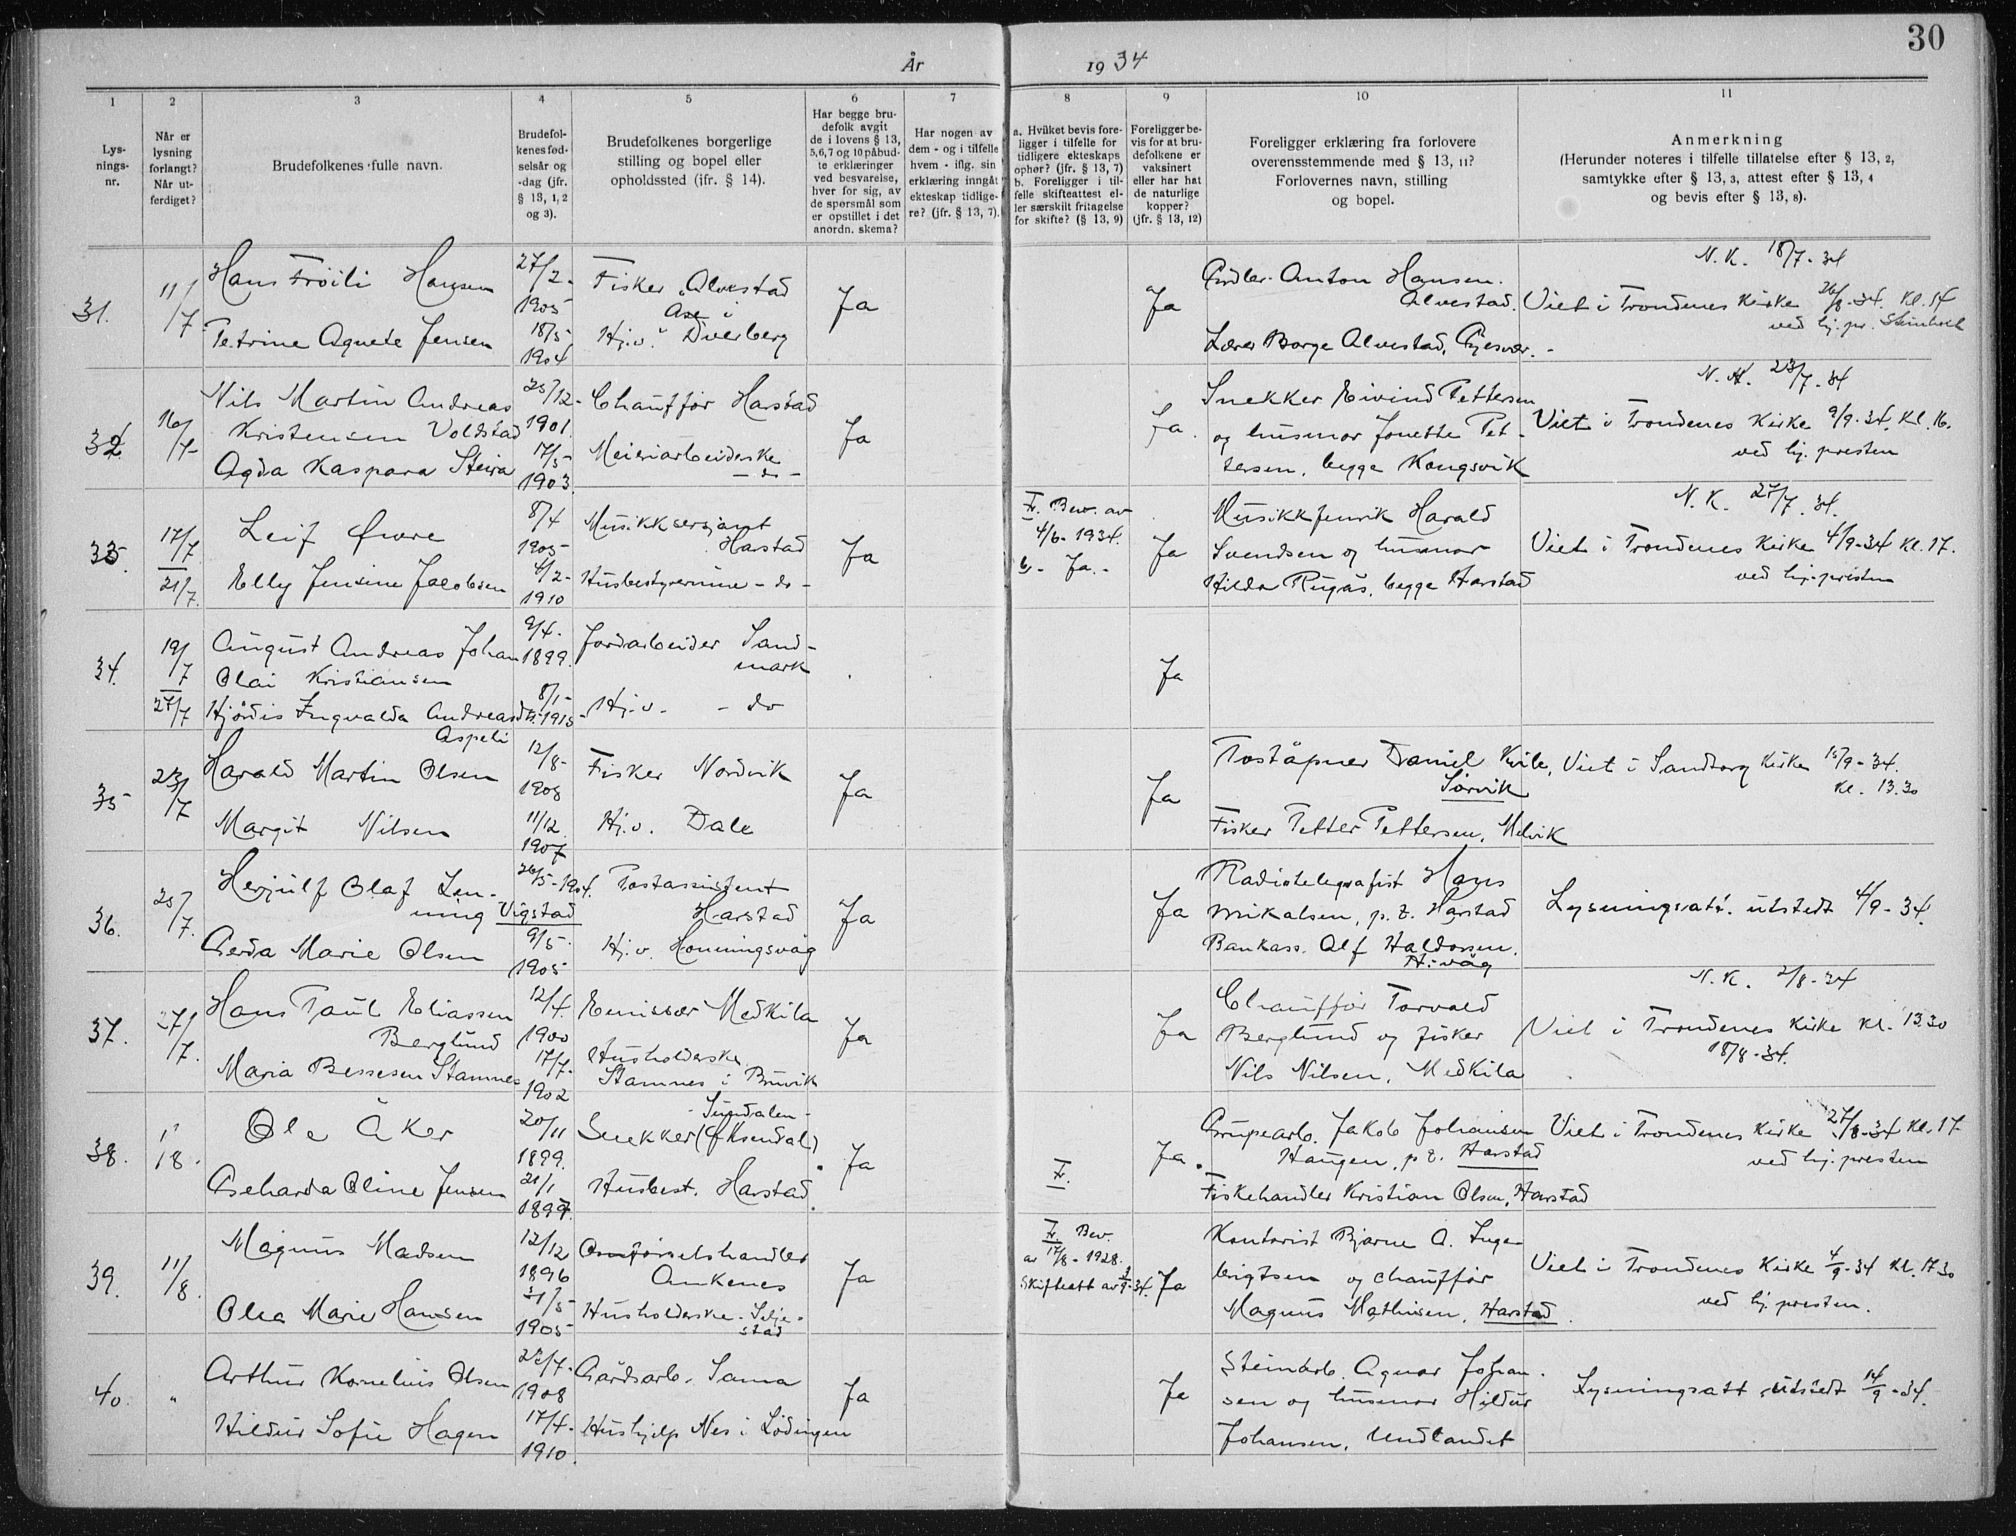 30
År 1934
1 2 3 4 5 6 7 8 9 10 11
Lys-
nings-
nr.
Når er
lysning
forlangt?
Når ut-
ferdiget?
Brudefolkenes fulle navn.
Brudefol-
kenes fød-
selsår og
-dag (jfr.
§ 13, 1, 2
og 3).
Brudefolkenes borgerlige
stilling og bopel eller
opholdssted (jfr. § 14).
Har begge bru-
defolk avgit
de i lovens § 13,
5,6,7 og 10 påbud-
te erklæringer
ved besvarelse,
hver for sig, av
de spørsmål som
er opstillet i det
anordn. skema?
Har nogen av
dem - og i tilfelle
hvem - iflg. sin
erklæring inngått
ekteskap tidlige-
re? (jfr. § 13, 7).
a. Hvilket bevis fore-
ligger i tilfelle for
tidligere ekteskaps
ophør? (jfr. § 13, 7)
b. Foreligger i til-
felle skifteattest el-
ler særskilt fritagelse
for skifte? (§ 13, 9)
Foreligger be-
vis for at bru-
defolkene er
vaksinert
eller har hat
de naturlige
kopper?
(jfr. § 13, 12)
Foreligger erklæring fra forlovere
overensstemmende med § 13, 11?
Forlovernes navn, stilling
og bopel.
Anmerkning
(Herunder noteres i tilfelle tillatelse efter § 13, 2,
samtykke efter § 13, 3, attest efter § 13, 4
og bevis efter § 13, 8).
31.
11/7
Hans Fröili Hansen
27/2-
1905
Petrine Agnete Jensen
18/5
1904
Fisker, Alvestad
Åse i
Hj.v. Dverberg
Ja
Ja
Anton Hansen.
Alvestad.
Lærer Borge Alvestad,
N.K. 18/7-34
Viet i Trondenes Kirke 26/8-34. Kl. 14
ved hj.pr.
32.
16/7-
Nils Martin Andreas
Kristensen Voldstad
25/12-
1901.
Agda Kaspara Steira
17/5-
1903.
Chauffør Harstad
Meieriarbeiderske
- do -
Ja
Ja.
Snekker Eivind Pettersen
og husmor Jonette Pet-
tersen, begge Kongsvik
N.K. 23/7-34
Viet i Trondenes Kirke 9/9-34. Kl. 16.
ved hj. presten
33.
17/7
21/7.
Leif Øvre
8/4
1905-
Elly Jensine Jacobsen
4/2-
1910
Musikksersjant
Harstad
Husbestyrerinne - do -
Ja
F. Bev. av
4/6-1934.
b- Ja.-
Ja
Musikkfenrik Harald
Svendsen og husmor
Hilda Rugås, begge Harstad
N.K. 27/7.34.
Viet i Trondenes Kirke 4/9-34 Kl. 17.
ved hj.presten
34.
19/7
27/7
August Andreas Johan
Olai Kristiansen
9/4.
1899.
Hjördis Ingvalda Andreasdtr.
Aspeli
8/1-
1915
Jordarbeider Sand-
mark
Hj.v. - do
Ja
35
23/7
Harald Martin Olsen
12/8-
1908
Margit Nilsen
11/12
1907
Fisker Nordvik
Hj.v. Dale
Ja
Ja
Poståpner Daniel Kvile,
Sörvik
Fisker Petter Pettersen, Melvik
Viet i Sandtorg Kirke 15/9-34.
Kl. 13.30
36.
25/7.
Herjulf Olaf Len-
ning Vigstad
26/5-1904.
Gerda Marie Olsen
9/5-
1905
Postassistent
Harstad
Hj.v. Honningsvåg
Ja
Ja
Radiotelegrafist Hans
Mikalsen, p.t. Harstad
Bankass. Alf Haldorsen.
H:våg
Lysningsatt. utstedt 4/9-34.
37.
27/7.
Hans Paul Eliassen
Berglund
12/4.
1900
Maria Bessesen Stamnes
17/7-
1902
Emissær Medkila
Husholderske
Stamnes i Bruvik
Ja
Ja
Chauffør Torvald
Berglund og fisker
Nils Nilsen, Medkila
N.K. 2/8-34
Viet i Trondenes Kirke Kl. 13.30
18/8-34.
38.
1/8.
Ole Åker
20/11
1899.
Gerharda Oline Jensen
21/1
1897.
Sundalen-
Snekker (Øksendal)
Husbest. Harstad.
Ja
F.
Ja.
Grupearb. Jakob Johansen
Haugen, p.t. Harstad
Fiskehandler Kristian Olsen, Harstad
Viet i Trondenes Kirke 27/8-34 Kl. 17
ved hj. presten
39.
11/8.
Magnus Madsen
12/12
1896
Olea Marie Hansen
31/5
1905-
Omførselshandler
Ankenes
Husholderske. Selje-
stad
Ja
F. Bev.
av 17/8-1928.
Skifteatt av 3/9-34.
Ja
Kontorist Bjarne A. Inge-
brigtsen og chauffør
Magnus Mathisen, Harstad.
Viet i Trondenes Kirke 4/9-34 Kl. 17.30
ved hj. presten.
40.
"
Arthur Kornelius Olsen
1908
Hildur Sofie Hagen
17/4-
1910.
Gårdsarb. Sama
Hushjelp Nes i Lödingen
Ja
Ja
Steinarb. Agnar Johan-
sen og husmor Hildur
Johansen, Undlandet
Lysningsatt. utstedt 14/9-34.